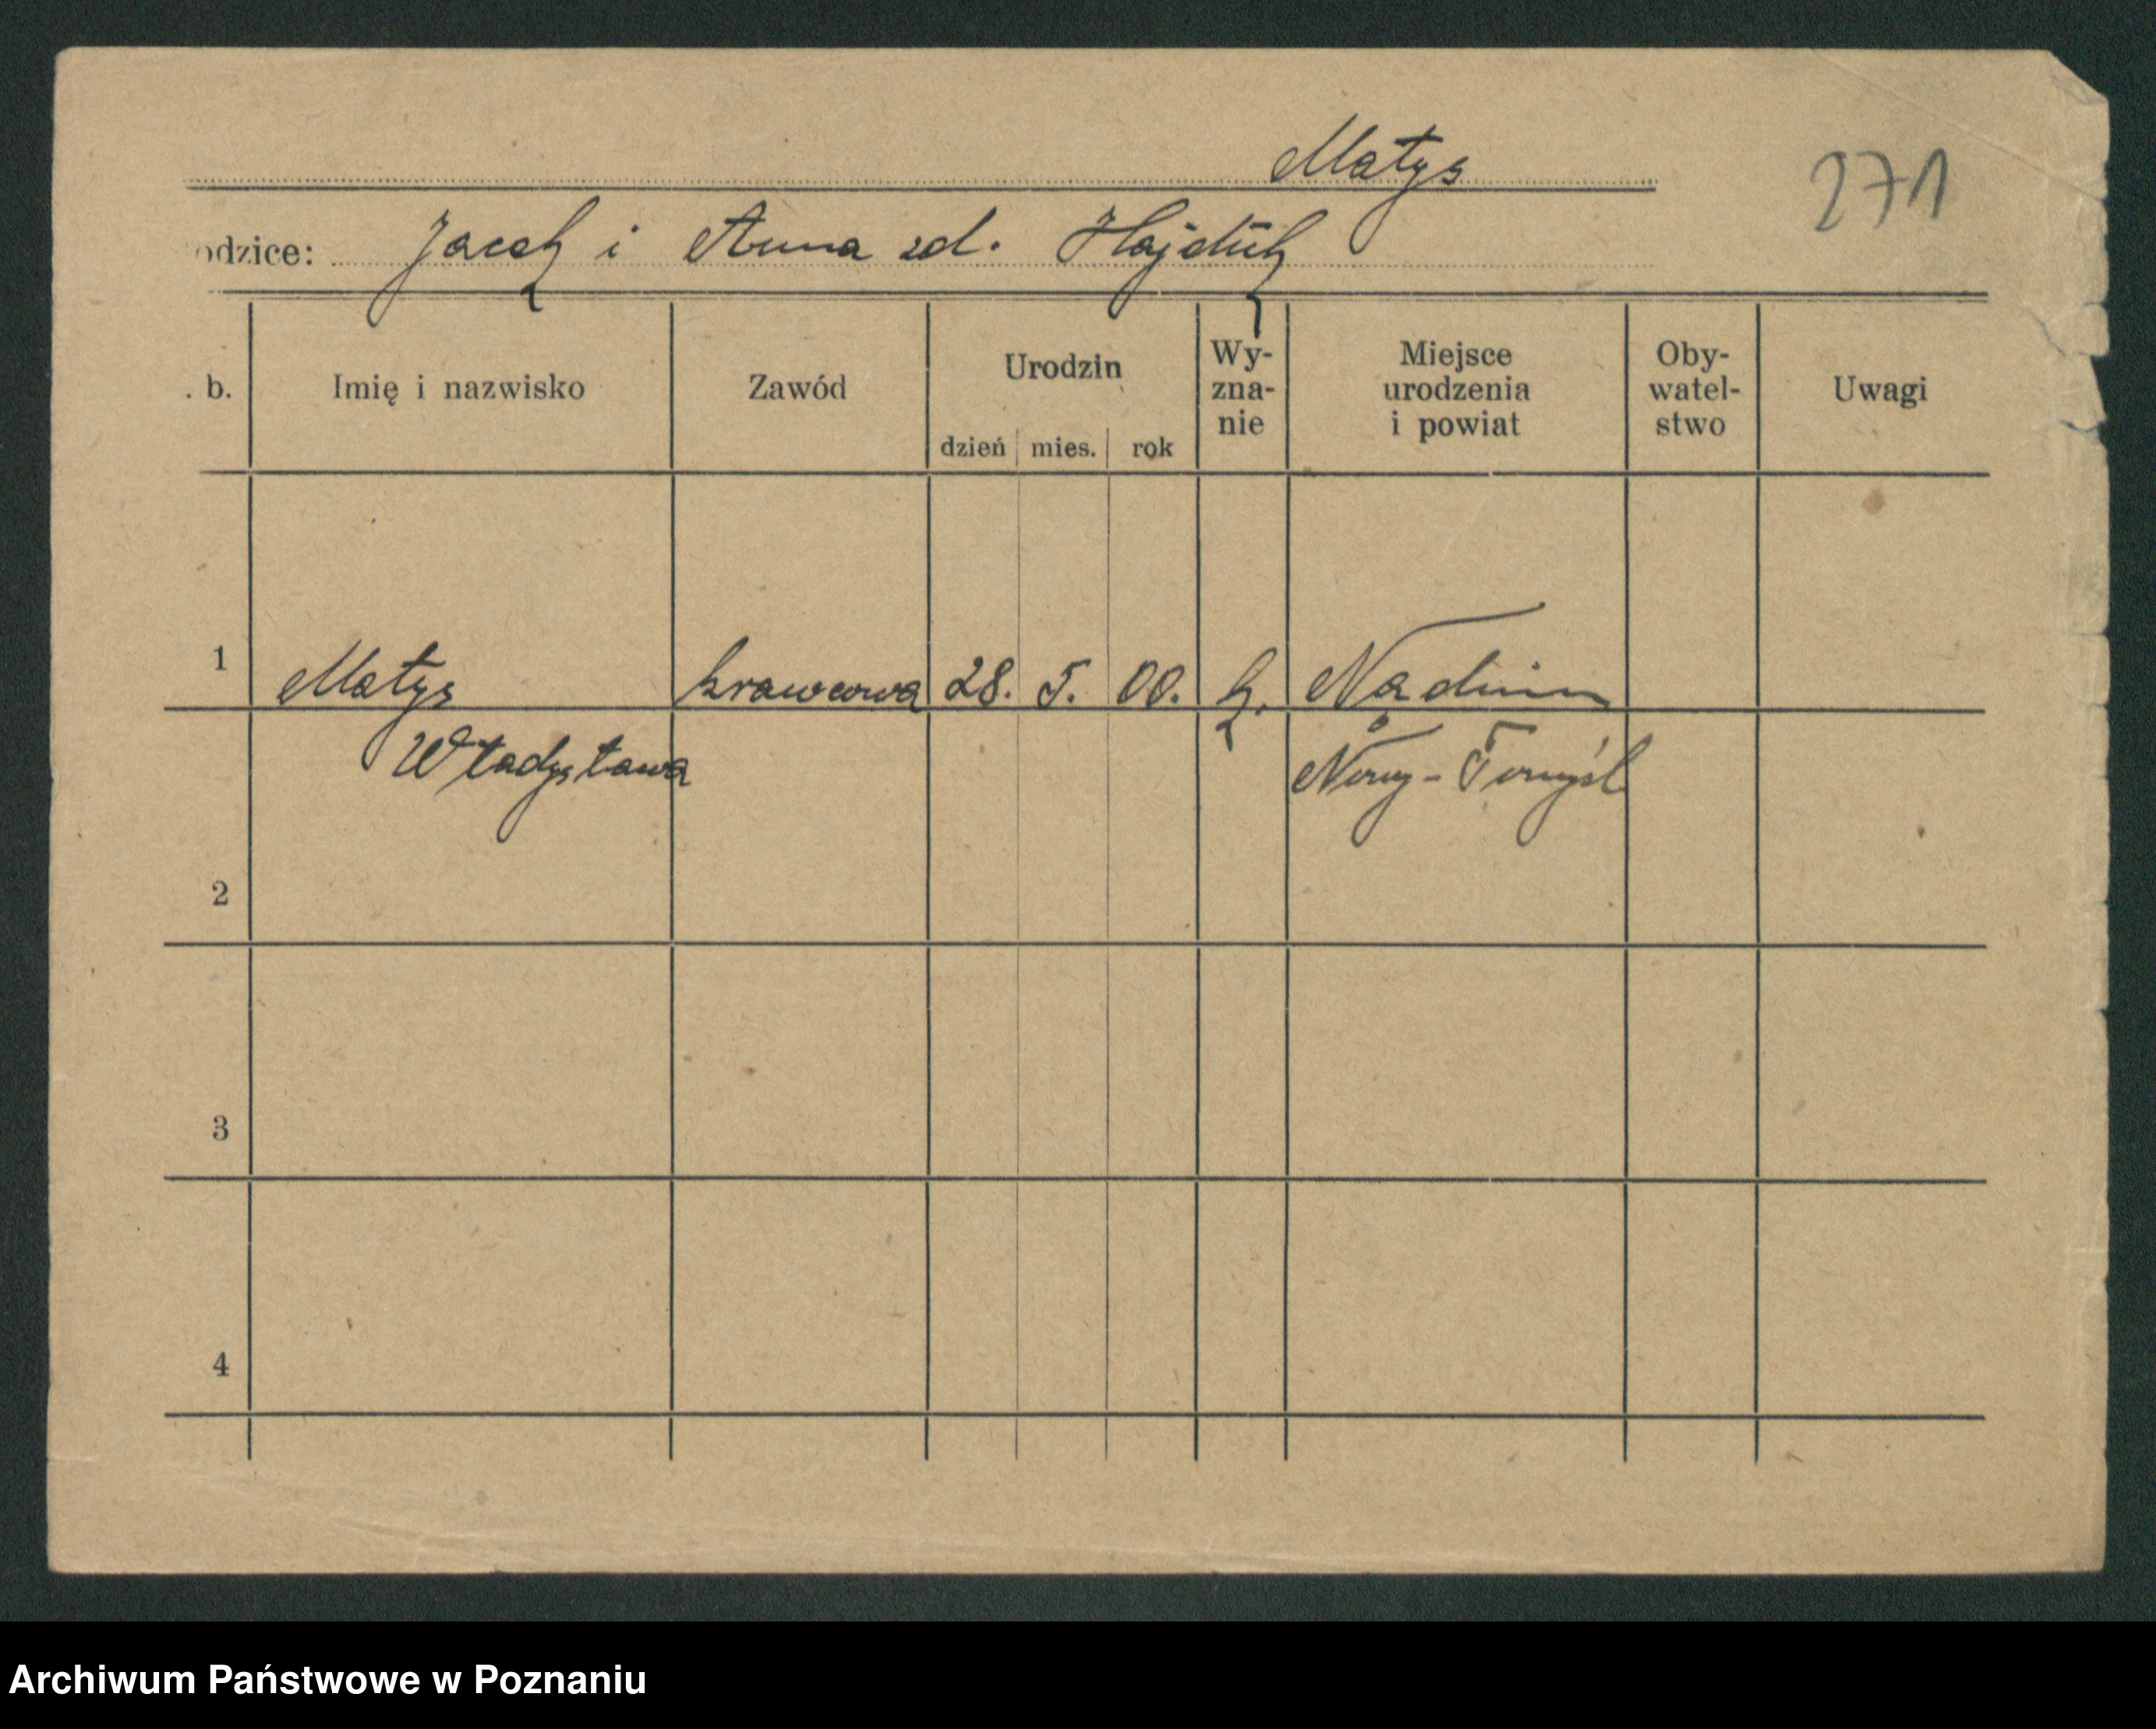 Matys
271
odzice: Jacek i Anna zd. Hajduk
. b.
Imię i nazwisko
Zawód
Urodzin
dzień
mies.
rok
Wy-
zna-
nie
Miejsce
urodzenia
i powiat
Oby-
watel-
stwo
Uwagi
1 Matys krawcowa 28. 5. 00. k.
Władysława Nowy-Tomyśl
2
3
4
Archiwum Państwowe w Poznaniu